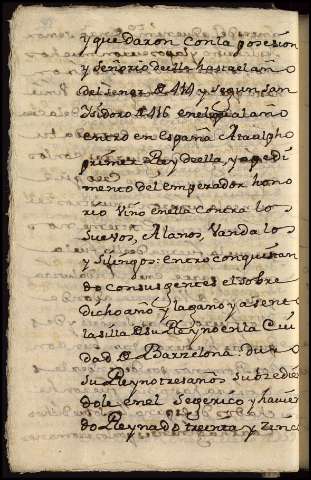 y quedaron con la posesion
y señorio de ella hasta el año
del señor de 414 y segun san
Ysidoro de 416 en el qual año
entro en España Ataulpho
primer Rey della, y a pedi
mento del emperador hono
rio vino en ella contra los
suevos, Alanos, Vandalos
y silingos: entro conquistan
do con sus gentes el sobre
dicho año y la gano y asento
la silla de su Reyno en la Ciu
dad de Barzelona. duro
su Reyno tres años subzedien
dole en el Segerico y havien
do Reynado treinta y zinco